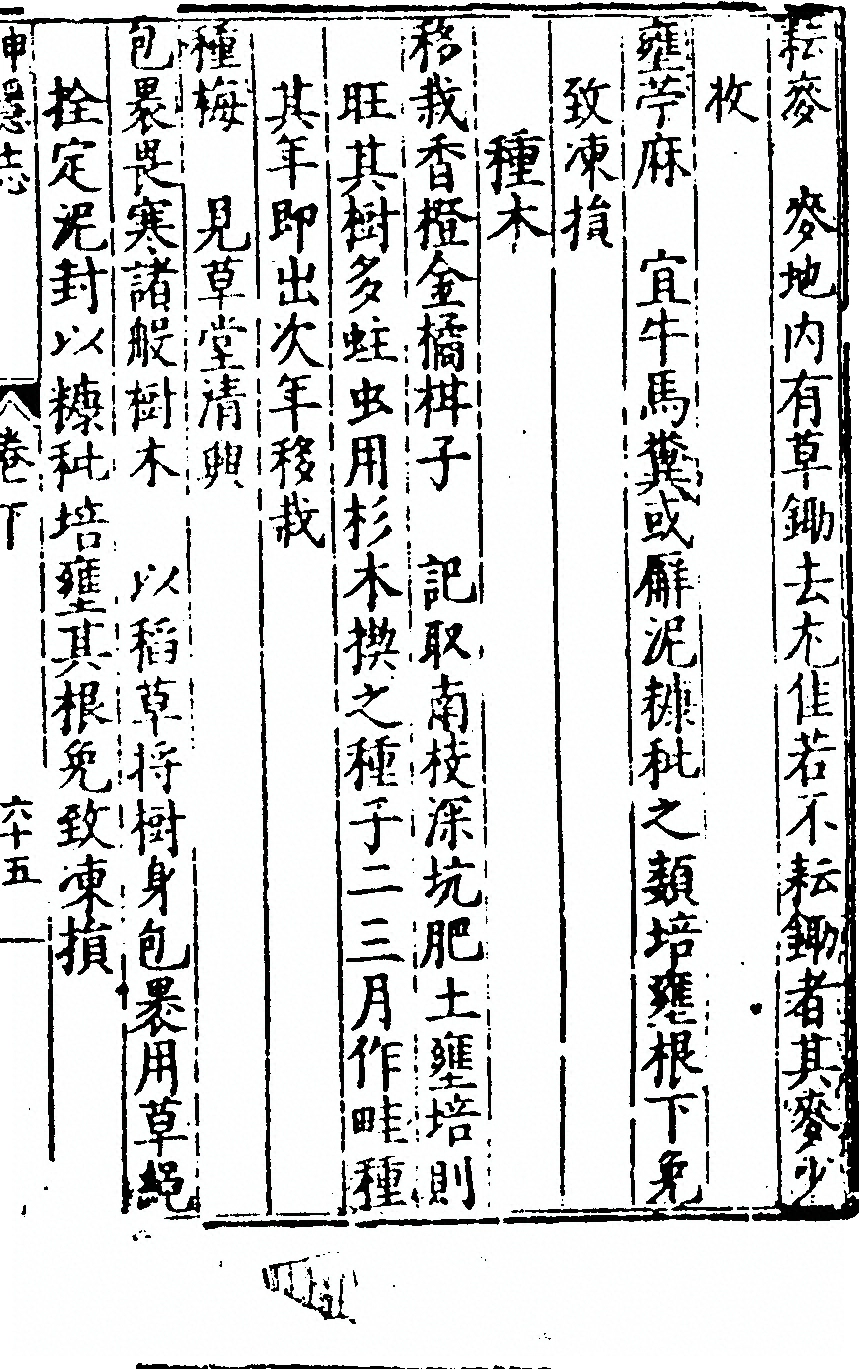 耘麥　麥地内有草鋤去尤佳若不耘鋤者其麥少
收
壅苧麻　宜牛馬糞或廨泥糠秕之類培壅根下免
致凍損
種木
移栽香橙金橘柑子　記取南枝深坑肥土壅培則
旺其樹多蛀虫用杉木楔之種子二三月作畦種
其年即出次年移栽
種梅　見草堂清興
包裹畏寒諸般樹木　以稻草將樹身包裹用草繩
拴定泥封以糠秕培壅其根免致凍損
神隱志　卷下　六十五